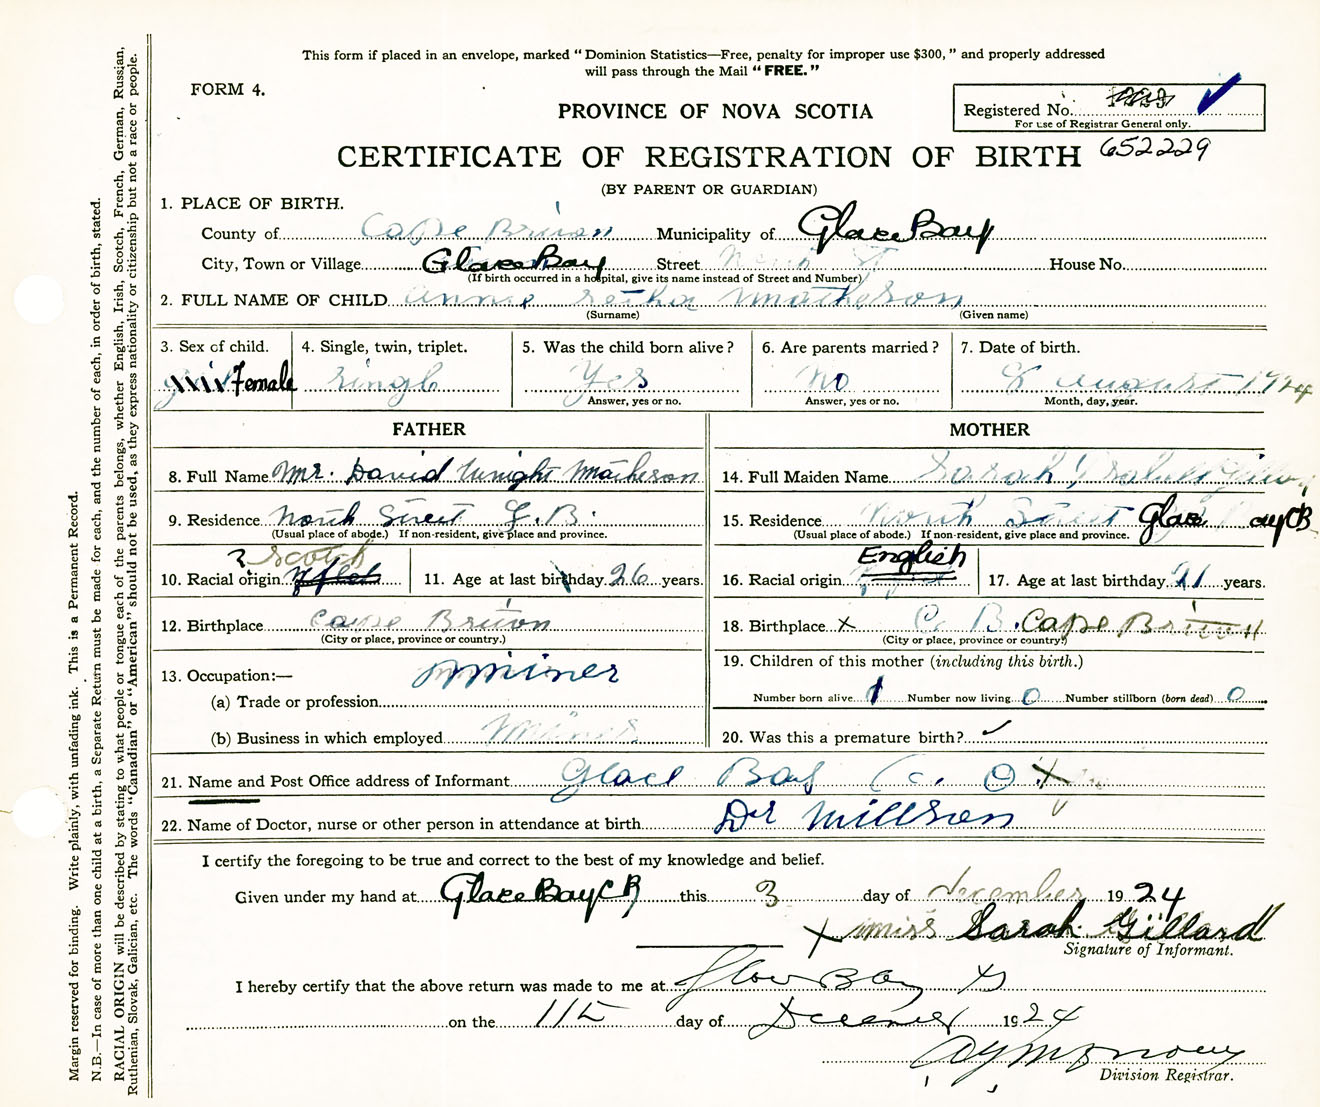 This form if placed in an envelope, marked "Dominion Statistics—Free, penalty for improper use $300," and properly addressed
will pass through the Mail "FREE."
FORM 4.
PROVINCE OF NOVA SCOTIA
Registered No.
For use of Registrar General only.
CERTIFICATE OF REGISTRATION OF BIRTH 652229
(BY PARENT OR GUARDIAN)
1. PLACE OF BIRTH.
County of Cape Briton Municipality of Glace Bay
City, Town or Village Glace Bay Street North St House No.
(If birth occurred in a hospital, give its name instead of Street and Number)
2. FULL NAME OF CHILD Annie Retha Matheson
(Surname) (Given name)
3. Sex of child. 4. Single, twin, triplet. 5. Was the child born alive? 6. Are parents married? 7. Date of birth.
Female Singl Yes No 8 August 1924
Answer, yes or no. Answer, yes or no. Month, day, year.
FATHER MOTHER
8. Full Name Mr. David Wright Matheson 14. Full Maiden Name Sarah
9. Residence North Street G. B. 15. Residence North Street Glace Bay CB
(Usual place of abode.) If non-resident, give place and province. (Usual place of abode.) If non-resident, give place and province.
10. Racial origin Scotch 11. Age at last birthday 26 years. 16. Racial origin English 17. Age at last birthday 21 years.
12. Birthplace Cape Briton 18. Birthplace x C. B. Cape Briton
(City or place, province or country.) (City or place, province or country)
13. Occupation:— miner 19. Children of this mother (including this birth.)
(a) Trade or profession Number born alive 1 Number now living 0 Number stillborn (born dead) 0
(b) Business in which employed Miner 20. Was this a premature birth? ✓
21. Name and Post Office address of Informant Glace Bay C. O X
22. Name of Doctor, nurse or other person in attendance at birth Dr Millson
I certify the foregoing to be true and correct to the best of my knowledge and belief.
Given under my hand at Glace Bay CB this 3 day of December 1924
X Miss Sarah Gillard
Signature of Informant.
I hereby certify that the above return was made to me at Glace Bay
on the 11th day of December 1924
Division Registrar.
Margin reserved for binding. Write plainly, with unfading ink. This is a Permanent Record.
N.B.—In case of more than one child at a birth, a Separate Return must be made for each, and the number of each, in order of birth, stated.
RACIAL ORIGIN will be described by stating to what people or tongue each of the parents belongs, whether English, Irish, Scotch, French, German, Russian,
Ruthenian, Slovak, Galician, etc. The words "Canadian" or "American" should not be used, as they express nationality or citizenship but not a race or people.